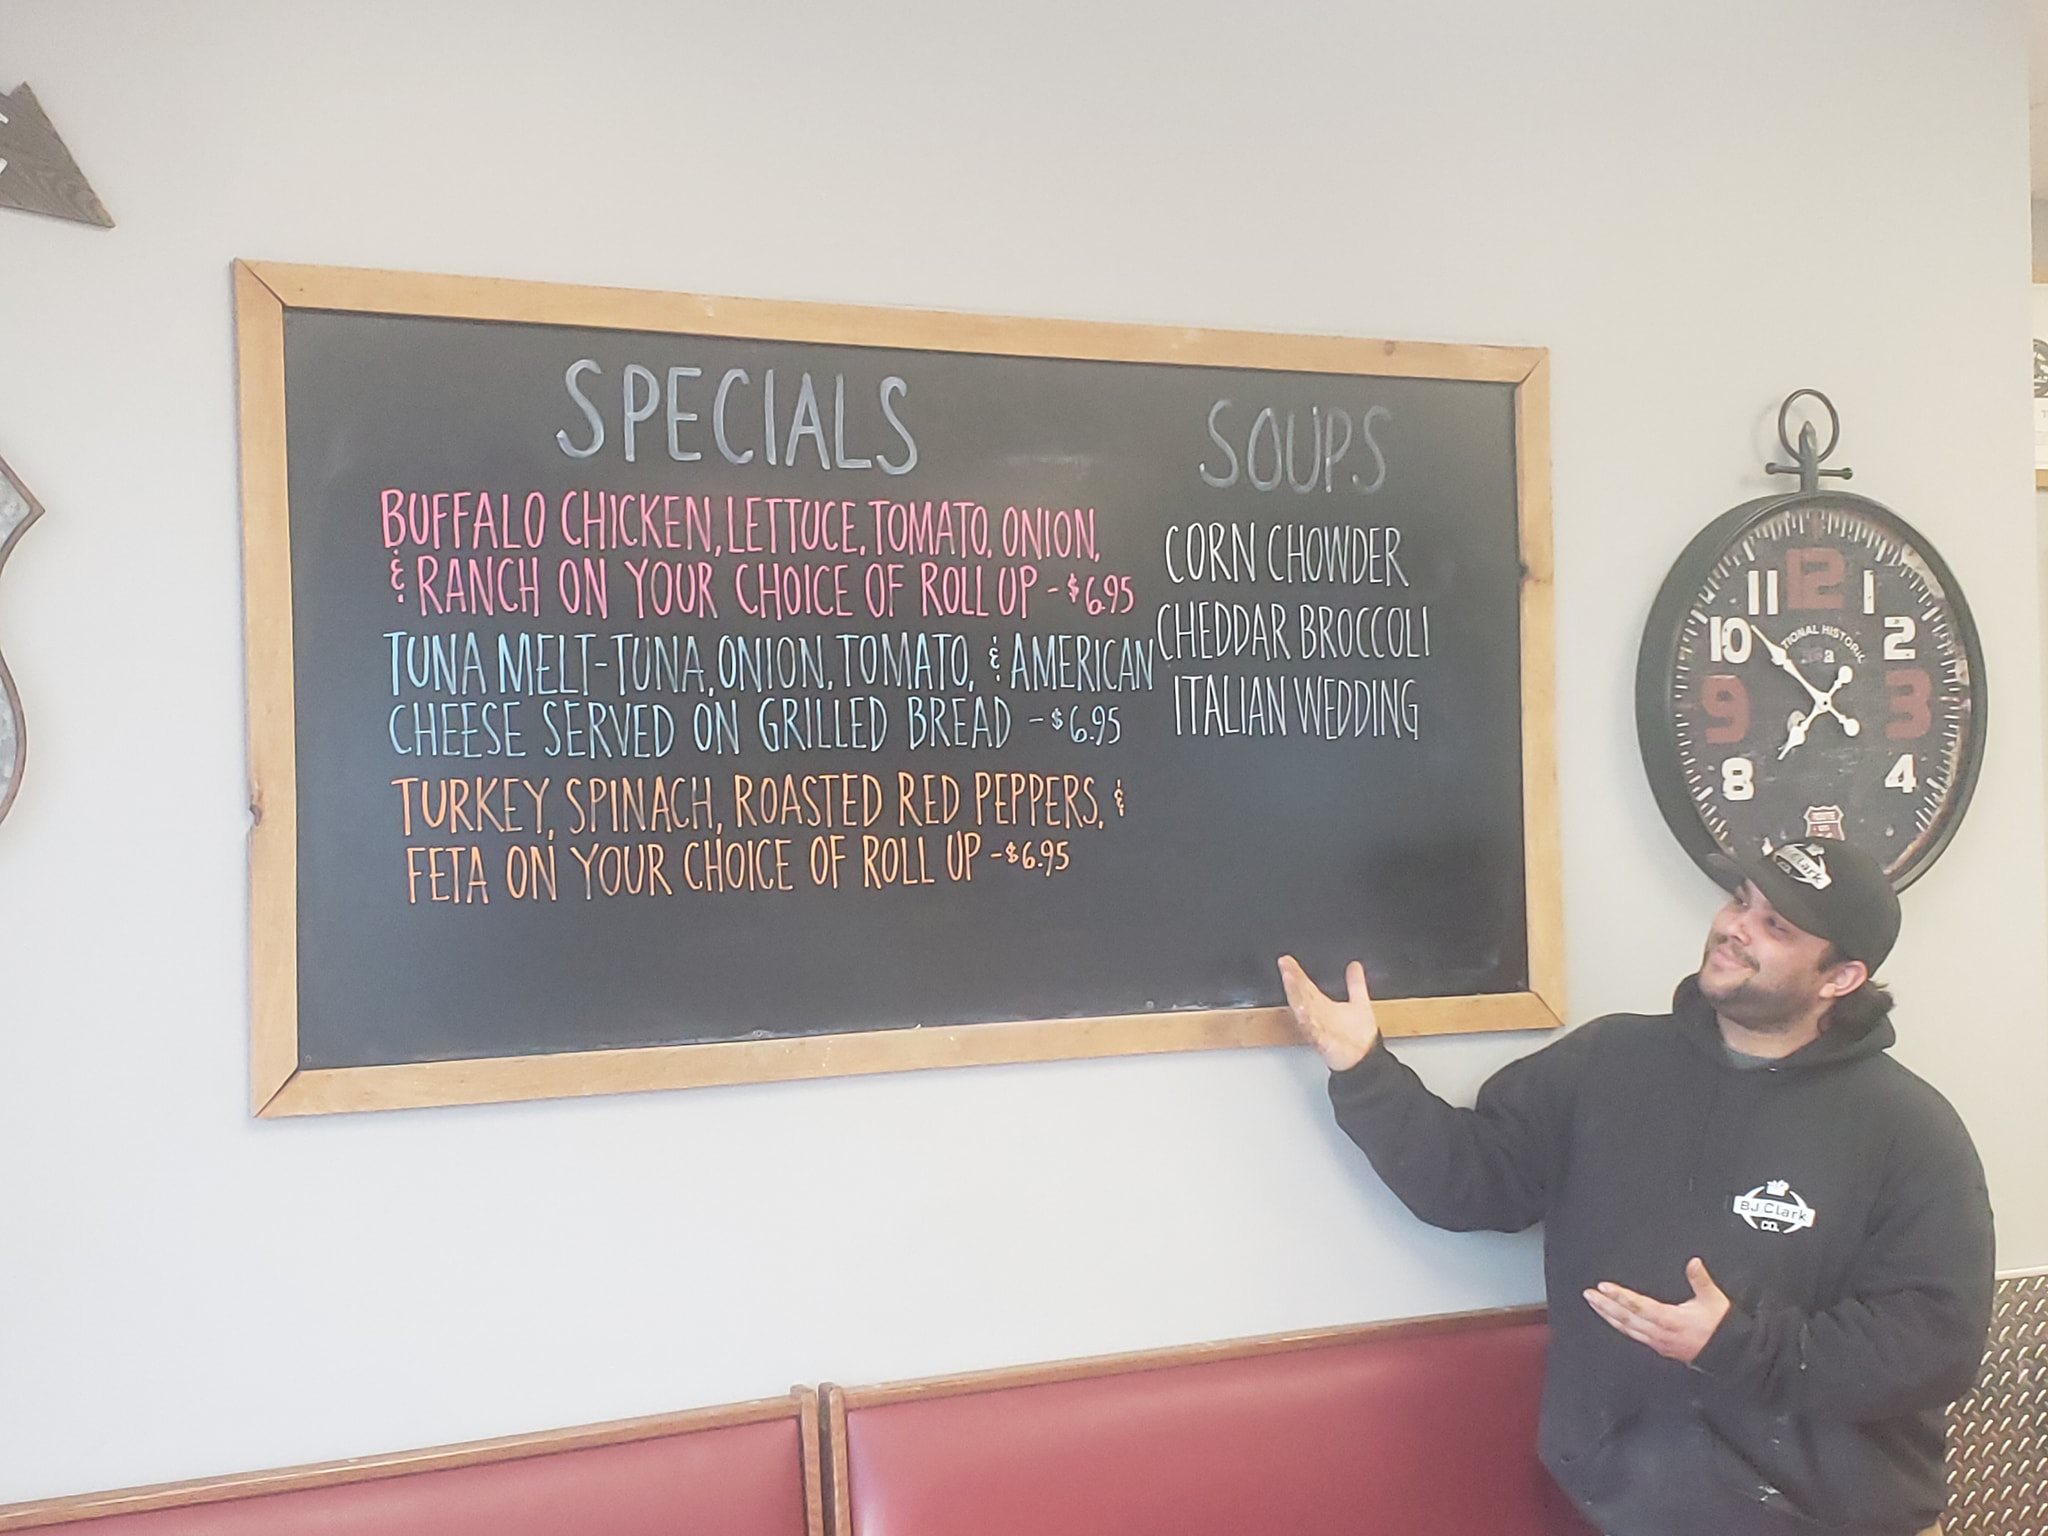 SPECIALS
BUFFALO CHICKEN, LETTUCE, TOMATO, ONION,
& RANCH ON YOUR CHOICE OF ROLL UP - $6.95
TUNA MELT-TUNA, ONION, TOMATO, & AMERICAN
CHEESE SERVED ON GRILLED BREAD - $6.95
TURKEY, SPINACH, ROASTED RED PEPPERS, &
FETA ON YOUR CHOICE OF ROLL UP - $6.95
SOUPS
CORN CHOWDER
CHEDDAR BROCCOLI
ITALIAN WEDDING
12
11 1
10 2
9 3
8 4
TIONAL HISTORIC
ROUTE
Clark
BJ Clark
CO.